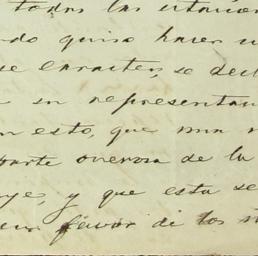 todas las
do quiso hacer
caracter, se
su representa
esto, que una
parte onerosa de la
y que esta se
favor de los